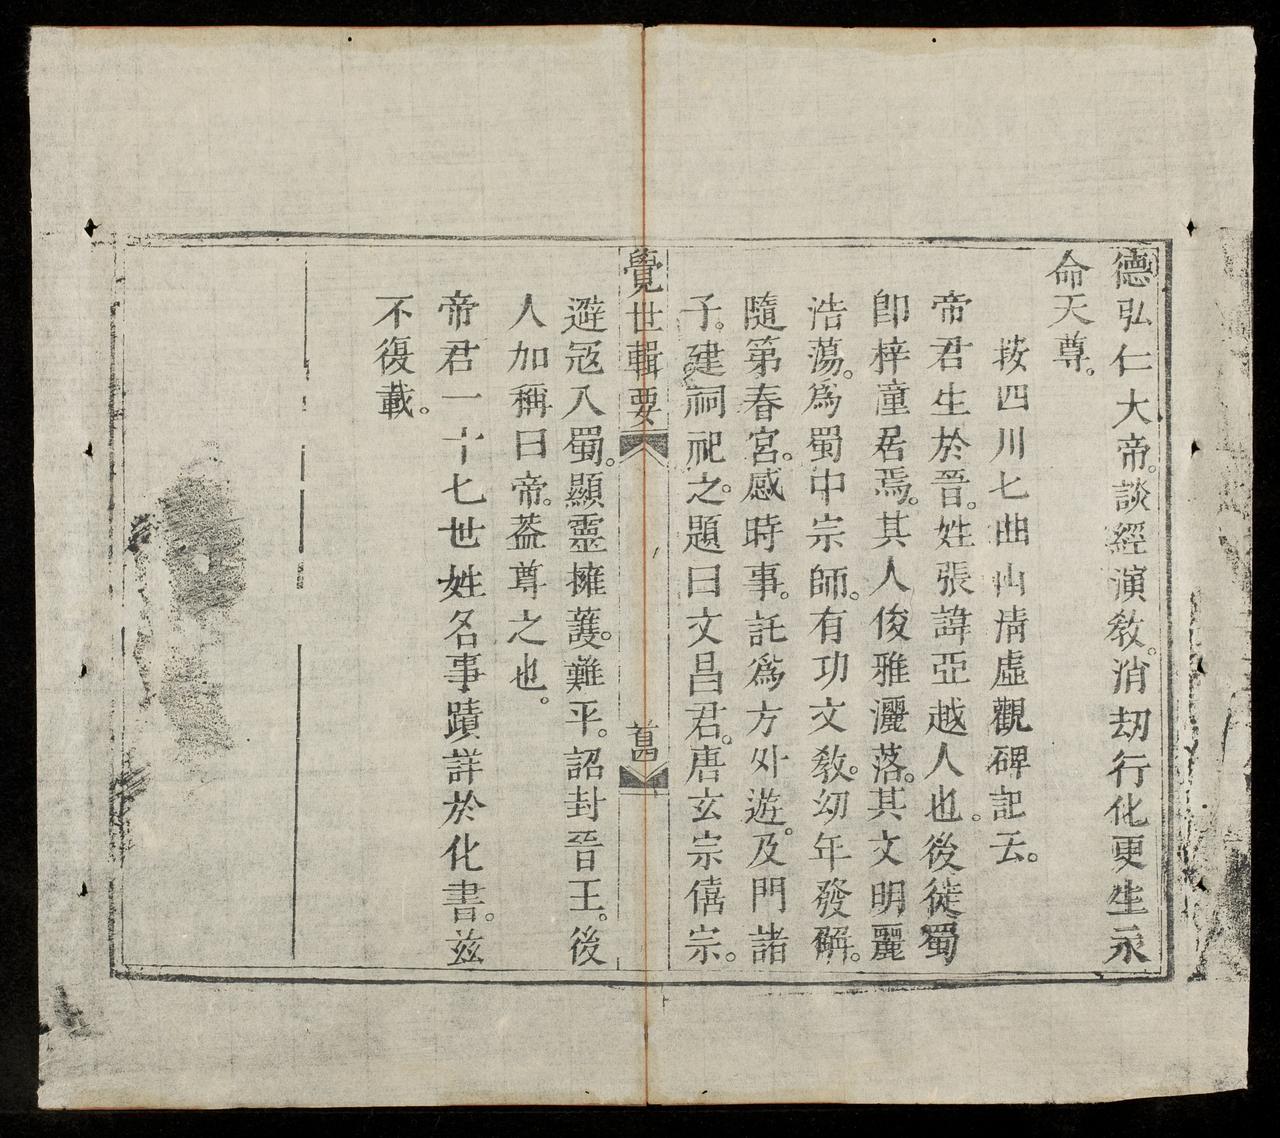 德弘仁大帝。談經演教。消刧行化更生永
命天尊。
按四川七曲山淸虛觀碑記云。
帝君生於晉。姓張諱亞越人也。後徙蜀
卽梓潼居焉。其人俊雅灑落。其文明麗
浩蕩。爲蜀中宗師。有功文敎。㓜年發解。
隨第春宮。感時事。託爲方外遊。及門諸
子。建祠祀之。題曰文昌君。唐玄宗僖宗。
覺世輯要
避冦入蜀。顯靈擁護。難平。詔封晉王。後
人加稱曰帝。葢尊之也。
帝君一十七世姓名事蹟詳於化書。兹
不復載。